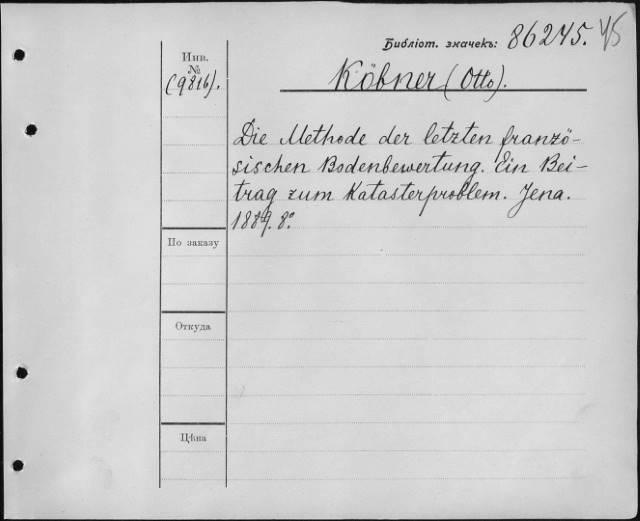 Библіот. значекъ: 86245. 45
Инв.
№
(9816).
Köbner (Otto).
Die Methode der letzten franzö-
sischen Bodenbewertung. Ein Bei-
trag zum Katasterproblem. Jena.
1889. 8º
По заказу
Откуда
Цѣна